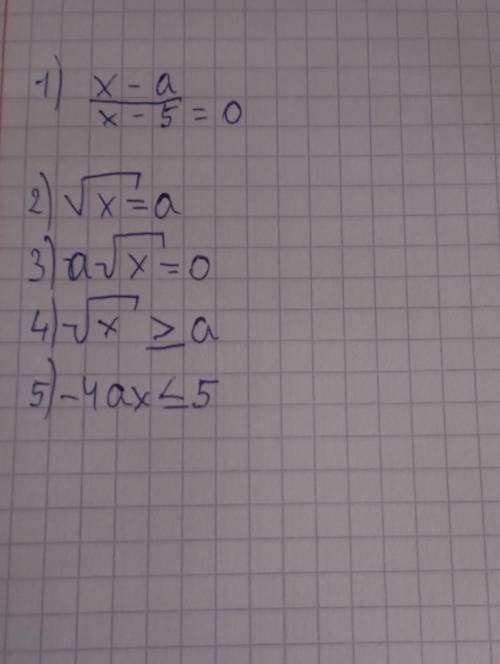 1) \frac{x - a}{x - 5} = 0
2) √x = a
3) a√x = 0
4) √x ≥ a
5) -4ax ≤ 5